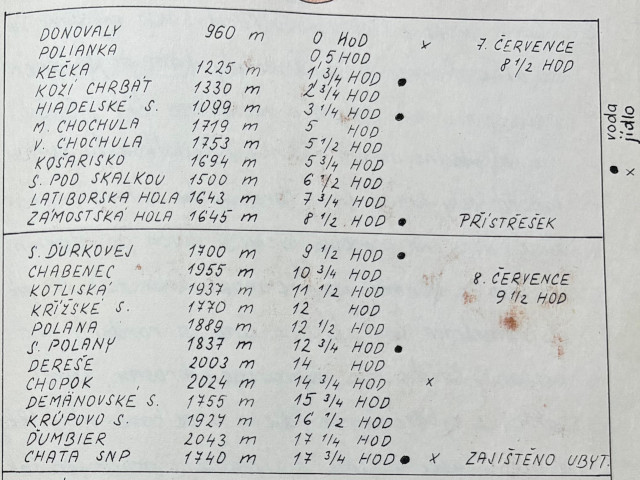 DONOVALY 960 m 0 HOD x 7. ČERVENCE
POLIANKA 0,5 HOD 8 1/2 HOD
KEČKA 1225 m 1 3/4 HOD ●
KOZÍ CHRBÁT 1330 m 2 3/4 HOD
HIADELSKÉ S. 1099 m 3 1/4 HOD ●
M. CHOCHULA 1719 m 5 HOD
V. CHOCHULA 1753 m 5 1/2 HOD
KOŠARISKO 1694 m 5 3/4 HOD
S. POD SKALKOU 1500 m 6 1/2 HOD
LATIBORSKÁ HOLA 1643 m 7 3/4 HOD
ZÁMOSTSKÁ HOLA 1645 m 8 1/2 HOD ● PŘÍSTŘEŠEK
● voda
x jídlo
S. ĎURKOVEJ 1700 m 9 1/2 HOD ●
CHABENEC 1955 m 10 3/4 HOD 8. ČERVENCE
KOTLISKÁ 1937 m 11 1/2 HOD 9 1/2 HOD
KRÍŽSKÉ S. 1770 m 12 HOD
POLANA 1889 m 12 1/2 HOD
S. POLANY 1837 m 12 3/4 HOD ●
DEREŠE 2003 m 14 HOD
CHOPOK 2024 m 14 3/4 HOD x
DEMÄNOVSKÉ S. 1755 m 15 3/4 HOD
KRÚPOVO S. 1927 m 16 1/2 HOD
ĎUMBIER 2043 m 17 1/4 HOD
CHATA SNP 1740 m 17 3/4 HOD ● x ZAJIŠTĚNO UBYT.